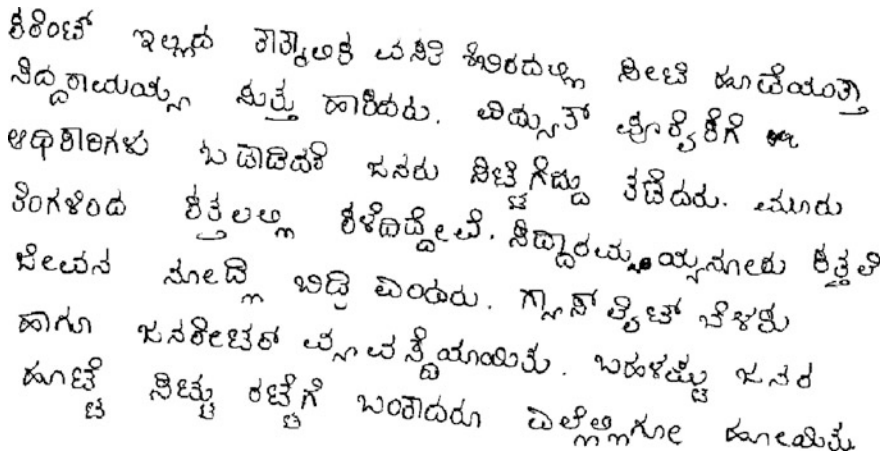 ಕರೆಂಟ್ ಇಲ್ಲದ ತಾತ್ಕಾಲಿಕ ವಸತಿ ಶಿಬಿರದಲ್ಲಿ ಸೀಟಿ ಊದೆಯುತ್ತಾ
ಸಿದ್ದರಾಮಯ್ಯ ಸುತ್ತು ಹಾಕಿದರು. ವಿದ್ಯುತ್ ಪೂರೈಕೆಗೆ
ಅಧಿಕಾರಿಗಳು ಓಡಾಡಿದರೆ ಜನರು ಸಿಟ್ಟಿಗೆದ್ದು ತಡೆದರು. ಮೂರು
ತಿಂಗಳಿಂದ ಕತ್ತಲಲ್ಲಿ ಕಳೆದಿದ್ದೇವೆ. ಕತ್ತಲೆ
ಜೀವನ ನೋಡ್ಲಿ ಬಿಡ್ರಿ ಎಂದರು. ಗ್ಯಾಸ್ ಲೈಟ್ ಬೆಳಕು
ಹಾಗೂ ಜನರೇಟರ್ ವ್ಯವಸ್ಥೆಯಾಯಿತು. ಬಹಳಷ್ಟು ಜನರ
ಹೊಟ್ಟೆ ಸಿಟ್ಟು ರಟ್ಟೆಗೆ ಬಂತಾದರೂ ಎಲ್ಲೆಲ್ಲಿಗೋ ಹೋಯಿತು